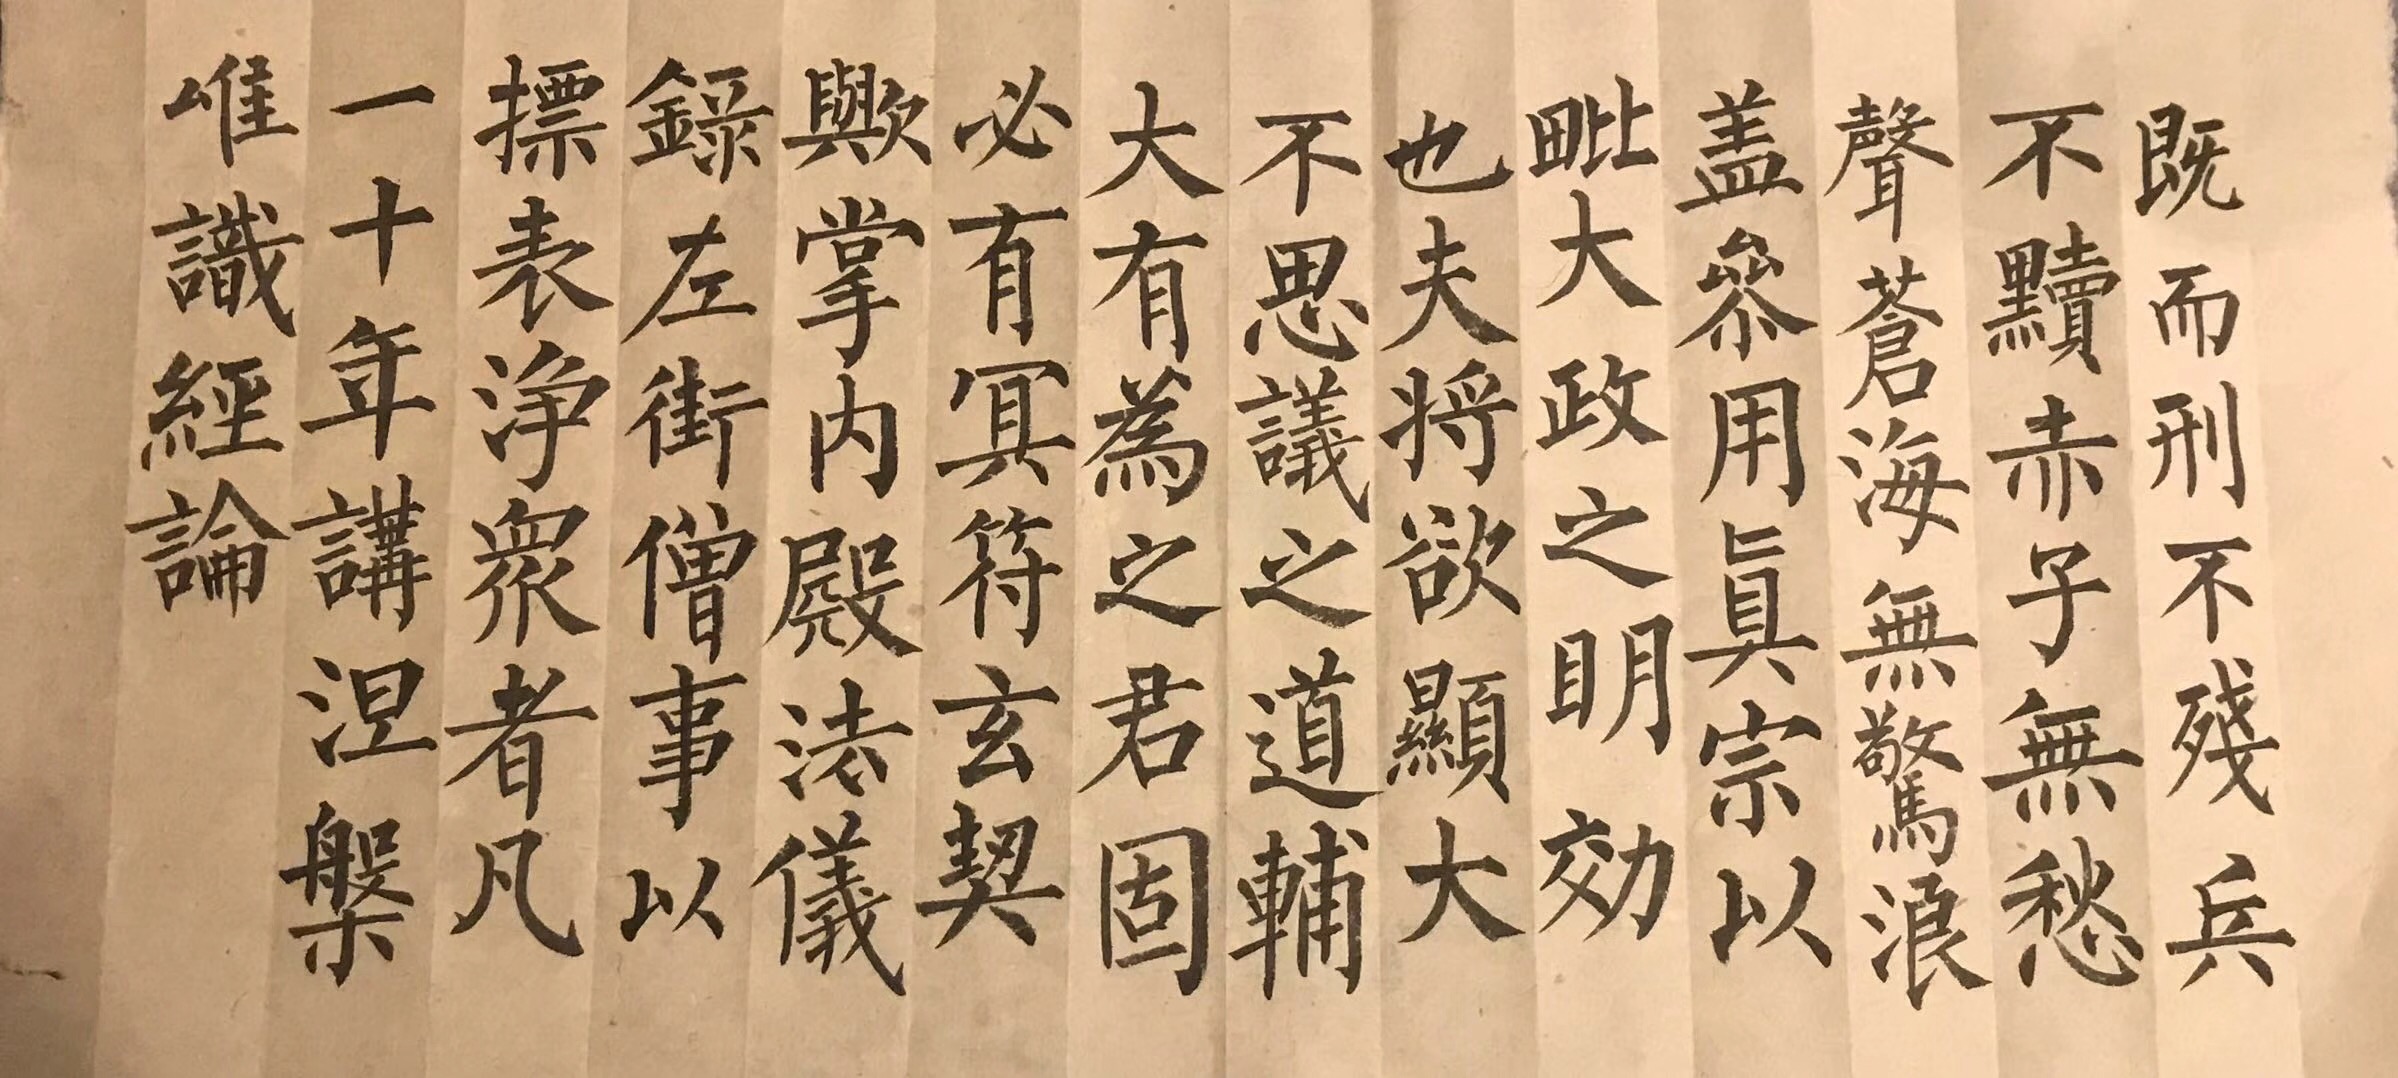 既而刑不殘兵
不黷赤子無愁
聲蒼海無驚浪
盖叅用眞宗以
毗大政之明効
也夫將欲顯大
不思議之道輔
大有為之君固
必有冥符玄契
歟掌内殿法儀
錄左街僧事以
摽表淨衆者凡
一十年講涅槃
唯識經論